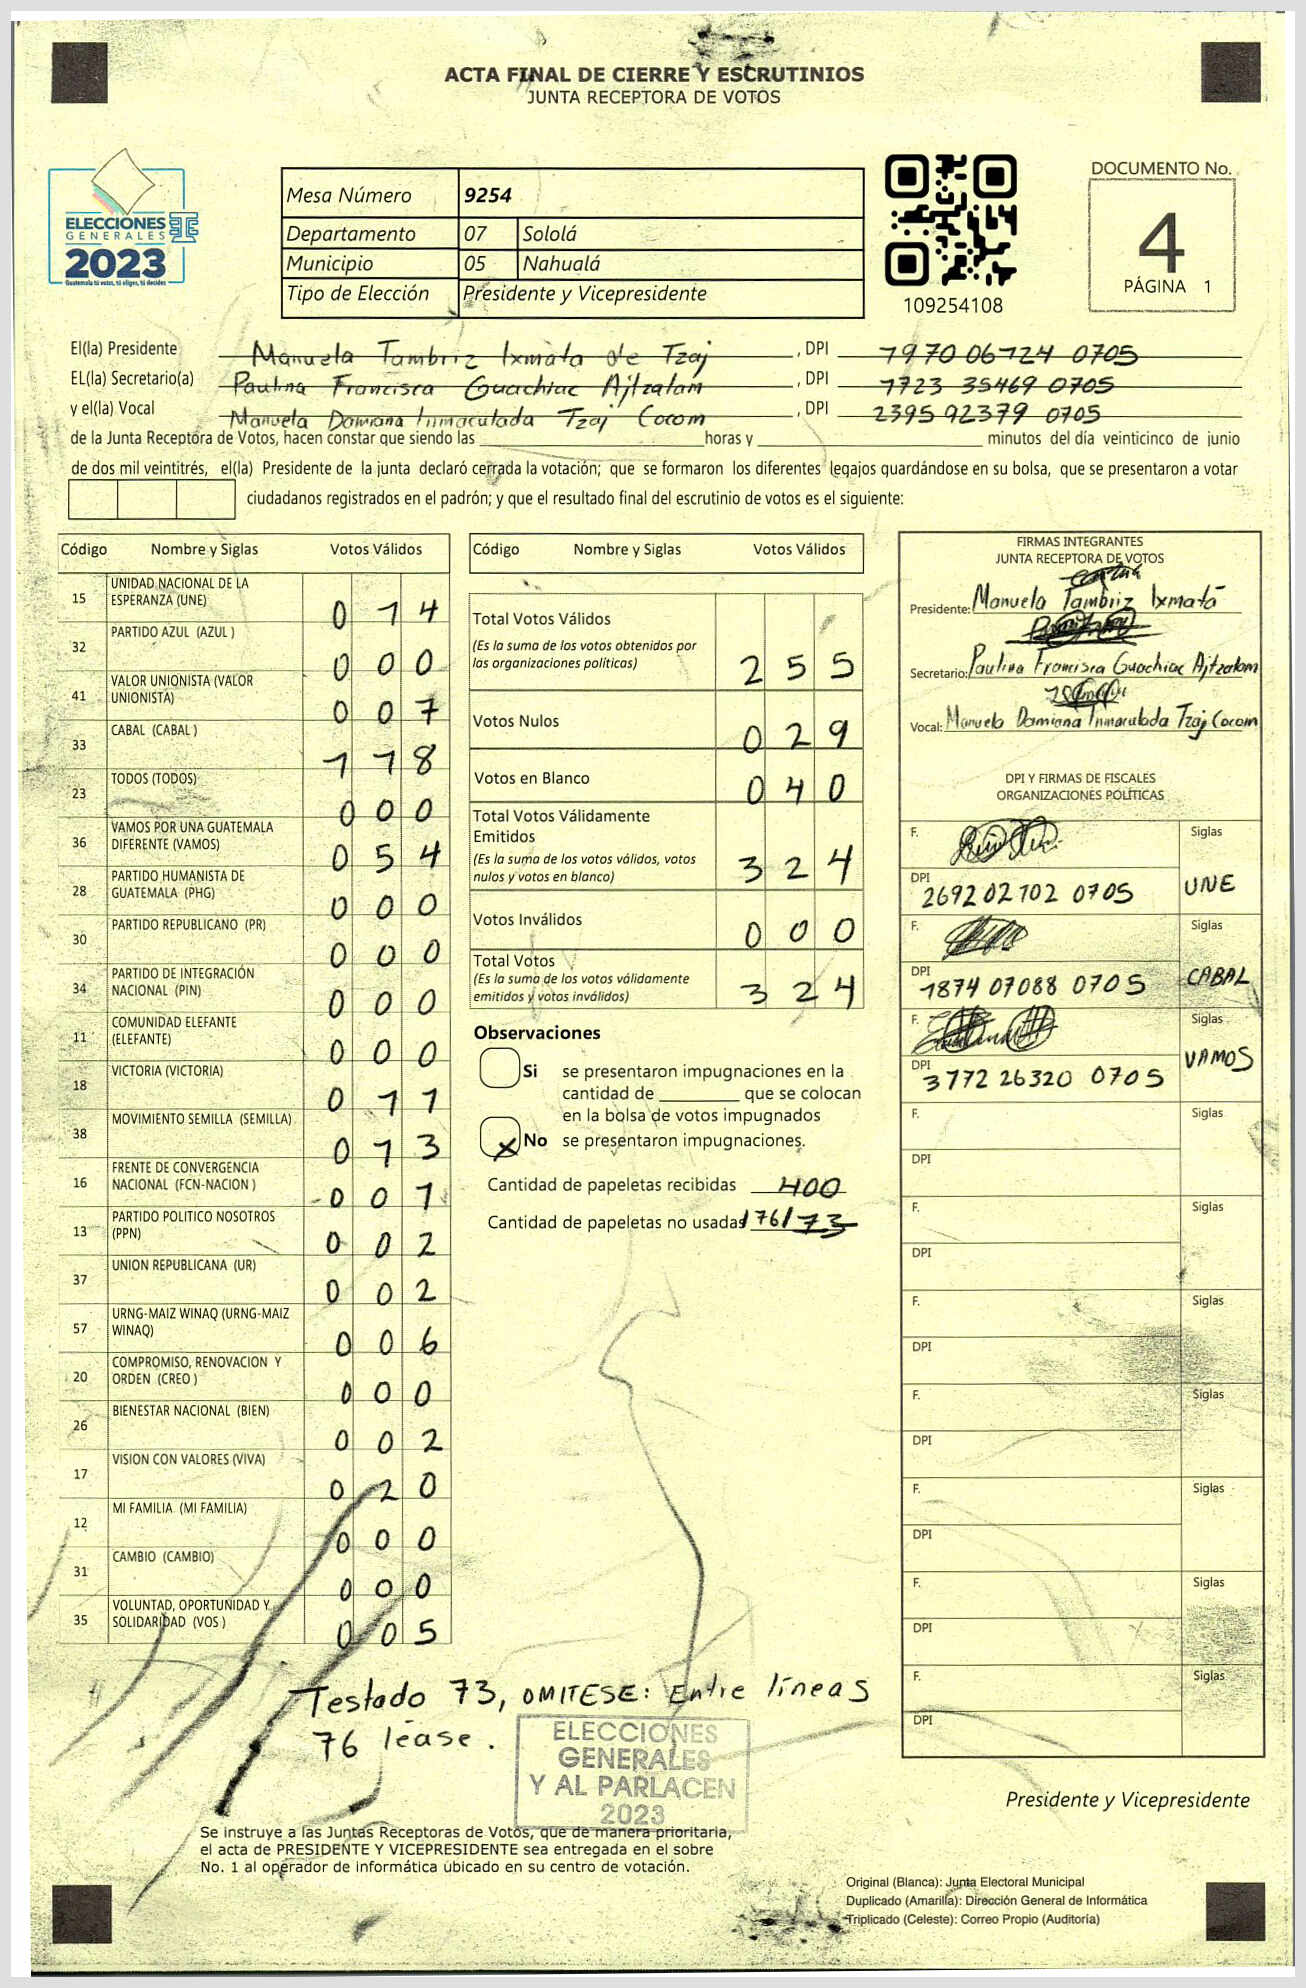 ACTA FINAL DE CIERRE Y ESCRUTINIOS
JUNTA RECEPTORA DE VOTOS
ELECCIONES
GENERALES
2023
Guatemala tú votas, tú eliges, tú decides
Mesa Número 9254
Departamento 07 Sololá
Municipio 05 Nahualá
Tipo de Elección Presidente y Vicepresidente
109254108
DOCUMENTO No.
4
PÁGINA 1
El(la) Presidente Manuela Tambriz Ixmata de Tzaj , DPI 1970 06124 0705
EL(la) Secretario(a) Paulina Francisca Guachiac Ajtzalam , DPI 1723 35469 0705
y el(la) Vocal Manuela Damiana Inmaculada Tzaj Cocom , DPI 2395 92379 0705
de la Junta Receptora de Votos, hacen constar que siendo las horas y minutos del día veinticinco de junio
de dos mil veintitrés, el(la) Presidente de la junta declaró cerrada la votación; que se formaron los diferentes legajos guardándose en su bolsa, que se presentaron a votar
ciudadanos registrados en el padrón; y que el resultado final del escrutinio de votos es el siguiente:
Código Nombre y Siglas Votos Válidos
15 UNIDAD NACIONAL DE LA ESPERANZA (UNE) 0 1 4
32 PARTIDO AZUL (AZUL ) 0 0 0
41 VALOR UNIONISTA (VALOR UNIONISTA) 0 0 7
33 CABAL (CABAL ) 1 1 8
23 TODOS (TODOS) 0 0 0
36 VAMOS POR UNA GUATEMALA DIFERENTE (VAMOS) 0 5 4
28 PARTIDO HUMANISTA DE GUATEMALA (PHG) 0 0 0
30 PARTIDO REPUBLICANO (PR) 0 0 0
34 PARTIDO DE INTEGRACIÓN NACIONAL (PIN) 0 0 0
11 COMUNIDAD ELEFANTE (ELEFANTE) 0 0 0
18 VICTORIA (VICTORIA) 0 1 1
38 MOVIMIENTO SEMILLA (SEMILLA) 0 1 3
16 FRENTE DE CONVERGENCIA NACIONAL (FCN-NACION ) 0 0 1
13 PARTIDO POLITICO NOSOTROS (PPN) 0 0 2
37 UNION REPUBLICANA (UR) 0 0 2
57 URNG-MAIZ WINAQ (URNG-MAIZ WINAQ) 0 0 6
20 COMPROMISO, RENOVACION Y ORDEN (CREO ) 0 0 0
26 BIENESTAR NACIONAL (BIEN) 0 0 2
17 VISION CON VALORES (VIVA) 0 2 0
12 MI FAMILIA (MI FAMILIA) 0 0 0
31 CAMBIO (CAMBIO) 0 0 0
35 VOLUNTAD, OPORTUNIDAD Y SOLIDARIDAD (VOS ) 0 0 5
Código Nombre y Siglas Votos Válidos
Total Votos Válidos
(Es la suma de los votos obtenidos por
las organizaciones políticas) 2 5 5
Votos Nulos 0 2 9
Votos en Blanco 0 4 0
Total Votos Válidamente
Emitidos
(Es la suma de los votos válidos, votos
nulos y votos en blanco) 3 2 4
Votos Inválidos 0 0 0
Total Votos
(Es la suma de los votos válidamente
emitidos y votos inválidos) 3 2 4
Observaciones
Si se presentaron impugnaciones en la
cantidad de que se colocan
en la bolsa de votos impugnados
X No se presentaron impugnaciones.
Cantidad de papeletas recibidas 400
Cantidad de papeletas no usadas 76/73
FIRMAS INTEGRANTES
JUNTA RECEPTORA DE VOTOS
Presidente: Manuela Tambriz Ixmatá
Secretario: Paulina Francisca Guachiac Ajtzalam
Vocal: Manuela Damiana Inmaculada Tzaj Cocom
DPI Y FIRMAS DE FISCALES
ORGANIZACIONES POLÍTICAS
F. Siglas
DPI 2692 02102 0705 UNE
F. Siglas
DPI 1874 07088 0705 CABAL
F. Siglas
DPI 3772 26320 0705 VAMOS
F. Siglas
DPI
F. Siglas
DPI
F. Siglas
DPI
F. Siglas
DPI
F. Siglas
DPI
F. Siglas
DPI
F. Siglas
DPI
Testado 73, OMITESE: Entre líneas
76 léase.
ELECCIONES
GENERALES
Y AL PARLACEN
2023
Presidente y Vicepresidente
Se instruye a las Juntas Receptoras de Votos, que de manera prioritaria,
el acta de PRESIDENTE Y VICEPRESIDENTE sea entregada en el sobre
No. 1 al operador de informática ubicado en su centro de votación.
Original (Blanca): Junta Electoral Municipal
Duplicado (Amarilla): Dirección General de Informática
Triplicado (Celeste): Correo Propio (Auditoría)